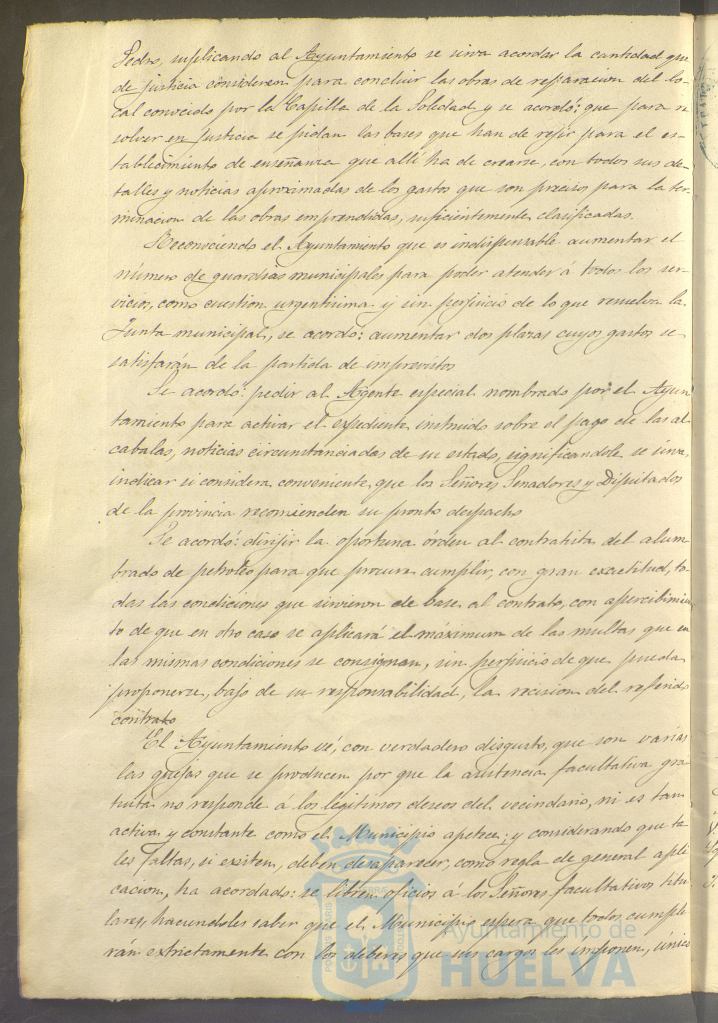 Pedro, suplicando al Ayuntamiento se sirva acordar la cantidad que
de justicia consideren para concluir las obras de reparacion del lo-
cal conocido por la Capilla de la Soledad y se acordó: que para re
solver en justicia se pidan las bases que han de regir para el es-
tablecimiento de enseñanza que allí ha de crearse, con todos sus de-
talles y noticias aproximadas de los gastos que son precisos para la ter-
minacion de las obras emprendidas, suficientemente clasificadas.
Reconociendo el Ayuntamiento que es indispensable aumentar el
número de guardias municipales para poder atender á todos los ser-
vicios, como cuestion urgentisima y sin perjuicio de lo que resuelva la
Junta municipal, se acordó: aumentar dos plazas cuyos gastos se
satisfarán de la partida de imprevistos
Se acordó: pedir al Agente especial nombrado por el Ayun
tamiento para activar el expediente instruido sobre el pago de las al
cabalas, noticias circunstanciadas de su estado, significandole se sirva
indicar si considera conveniente, que los Señores Senadores y Diputados
de la provincia recomienden su pronto despacho
Se acordó: dirijir la oportuna órden al contratista del alum
brado de petroleo para que procure cumplir, con gran exactitud, to-
das las condiciones que sirvieron de base al contrato, con apercibimien
to de que en otro caso se aplicará el máximum de las multas que en
las mismas condiciones se consignan, sin perjuicio de que pueda
proponerse, bajo de su responsabilidad, la recision del referido
contrato
El Ayuntamiento vé, con verdadero disgusto, que son varias
las quejas que se producen por que la asistencia facultativa gra
tuita no responde á los legitimos deseos del vecindario, ni es tan
activa y constante como el Municipio apetece; y considerando que ta
les faltas, si existen, deben desaparecer, como regla de general apli
cacion, ha acordado: se libren oficios á los Señores facultativos titu
lares, haciendoles saber que el Municipio espera que todos cumpli
rán extrictamente con los deberes que sus cargos les imponen, único
Ayuntamiento de
HUELVA